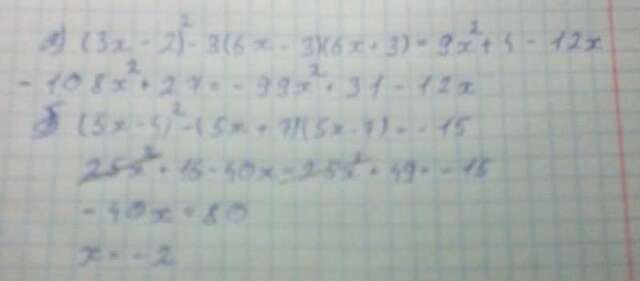 а) (3x - 2)² - 3(6x - 3)(6x + 3) = 9x² + 4 - 12x
- 108x² + 27 = - 99x² + 31 - 12x
б) (5x - 4)² - (5x + 7)(5x - 7) = - 15
25x² + 16 - 40x - 25x² + 49 = - 15
- 40x = 80
x = - 2